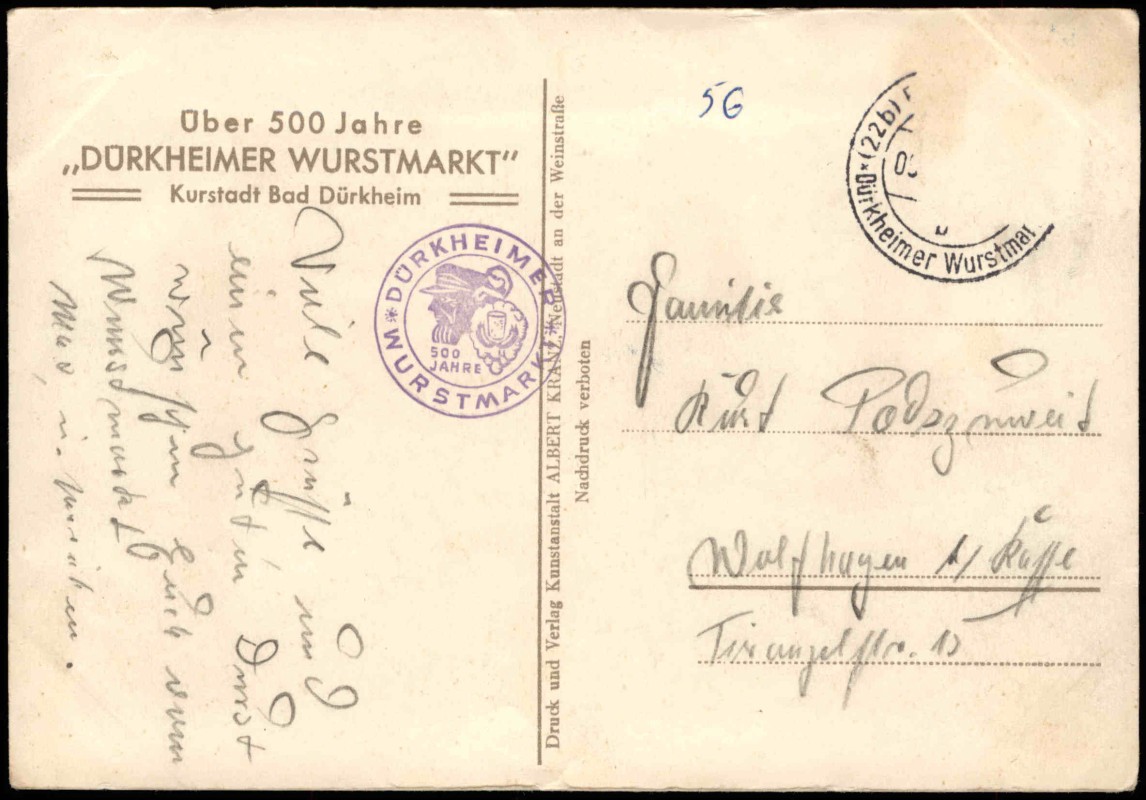 Über 500 Jahre
„DÜRKHEIMER WURSTMARKT“
Kurstadt Bad Dürkheim
Viele Grüße und
einen guten Durst
Euch vom
Wurstmarkt
DÜRKHEIMER
WURSTMARKT
500
JAHRE
Druck und Verlag Kunstanstalt ALBERT KRANZ, Neustadt an der Weinstraße
Nachdruck verboten
56
(22b)
Dürkheimer Wurstmar
Familie
Kurt Podszuweit
Wolfhagen b/ Kassel